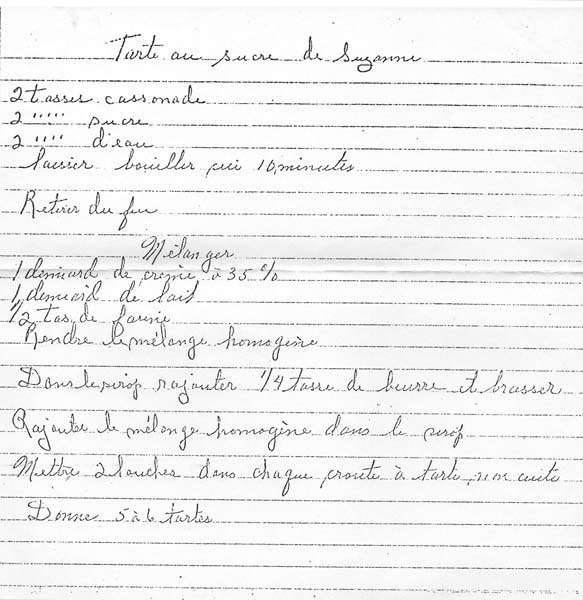 Tarte au sucre de Suzanne
2 tasses cassonade
2 " " " sucre
2 " " " d'eau
laisser bouiller 10 minutes
Retirer du feu
Mélanger
1 demiard de crème à 35 %
1 demiard de lait
1/2 tas. de farine
Rendre le mélange homogène
Dans le sirop rajouter 1/4 tasse de beurre et brasser
Rajouter le mélange homogène dans le sirop
Mettre 2 louches dans chaque croute à tarte non cuite
Donne 5 à 6 tartes